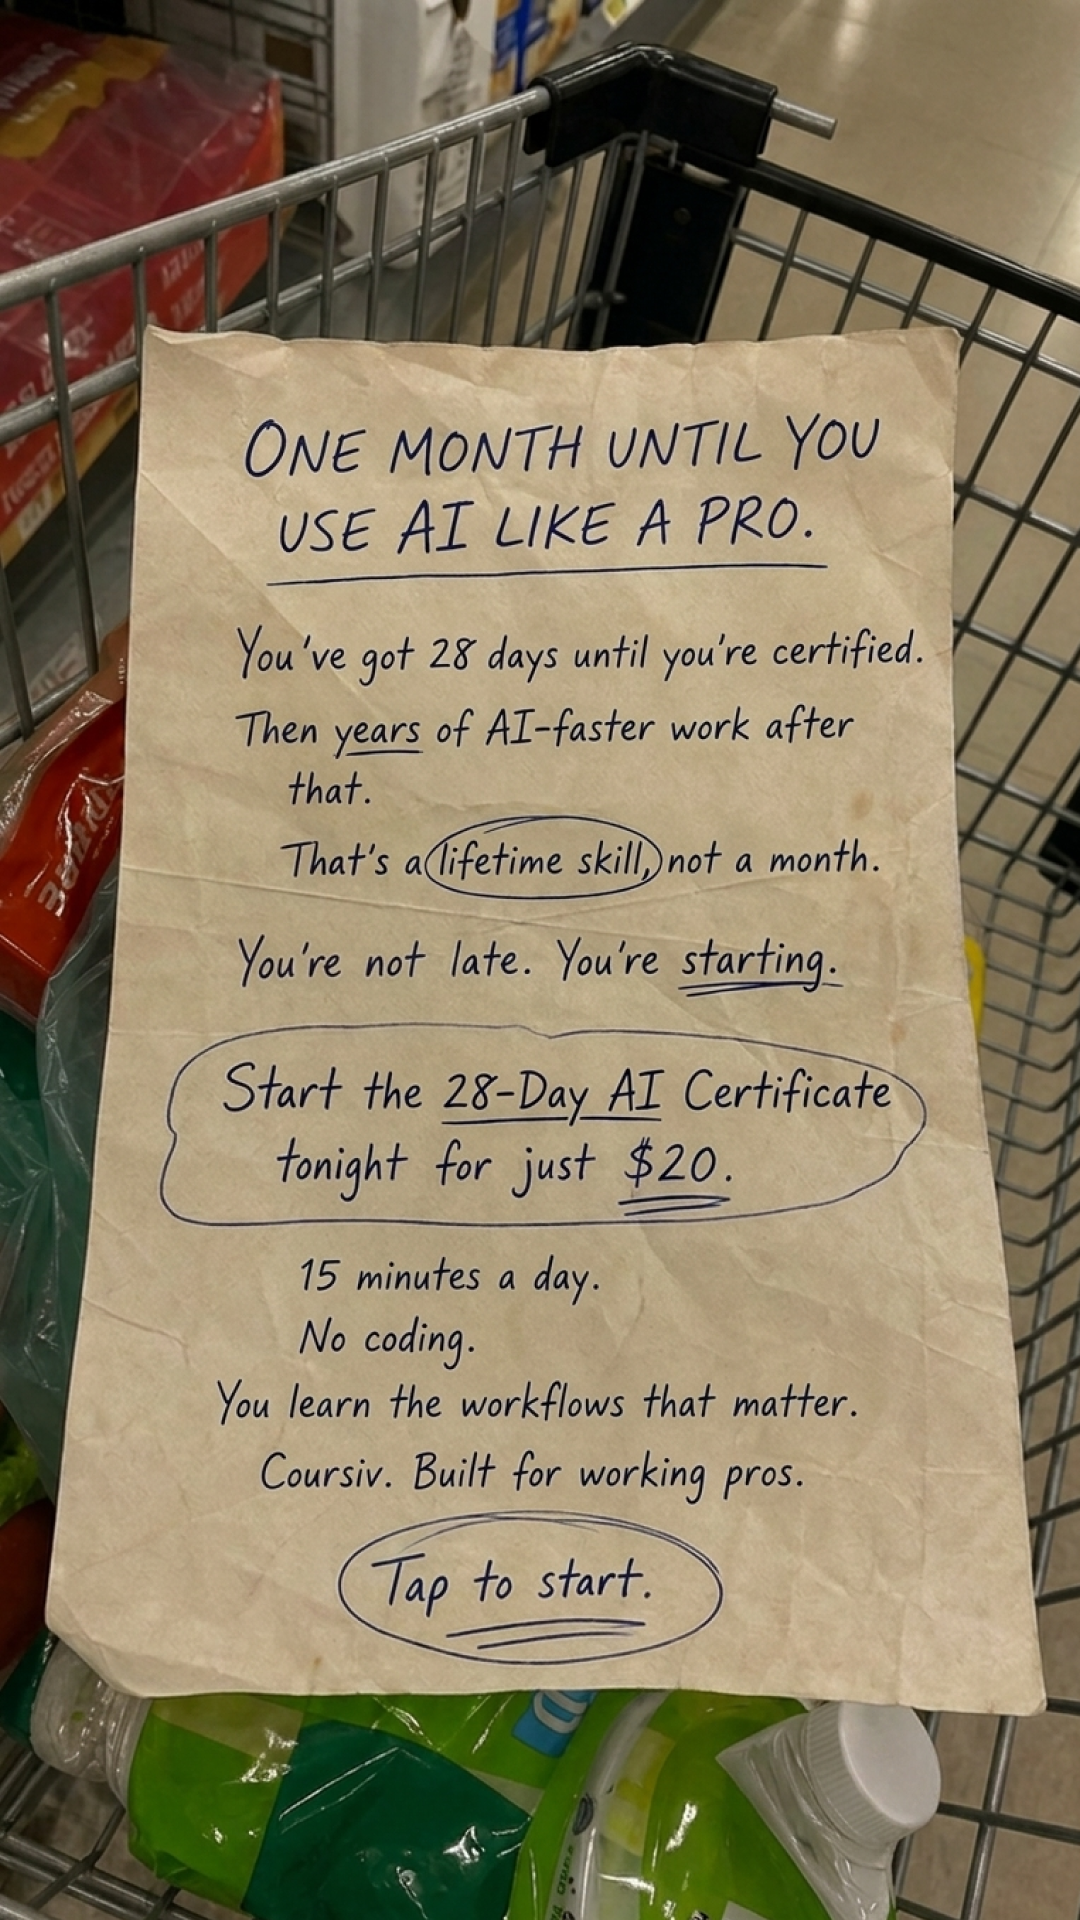 ONE MONTH UNTIL YOU
USE AI LIKE A PRO.
You've got 28 days until you're certified.
Then years of AI-faster work after
that.
That's a lifetime skill, not a month.
You're not late. You're starting.
Start the 28-Day AI Certificate
tonight for just $20.
15 minutes a day.
No coding.
You learn the workflows that matter.
Coursiv. Built for working pros.
Tap to start.